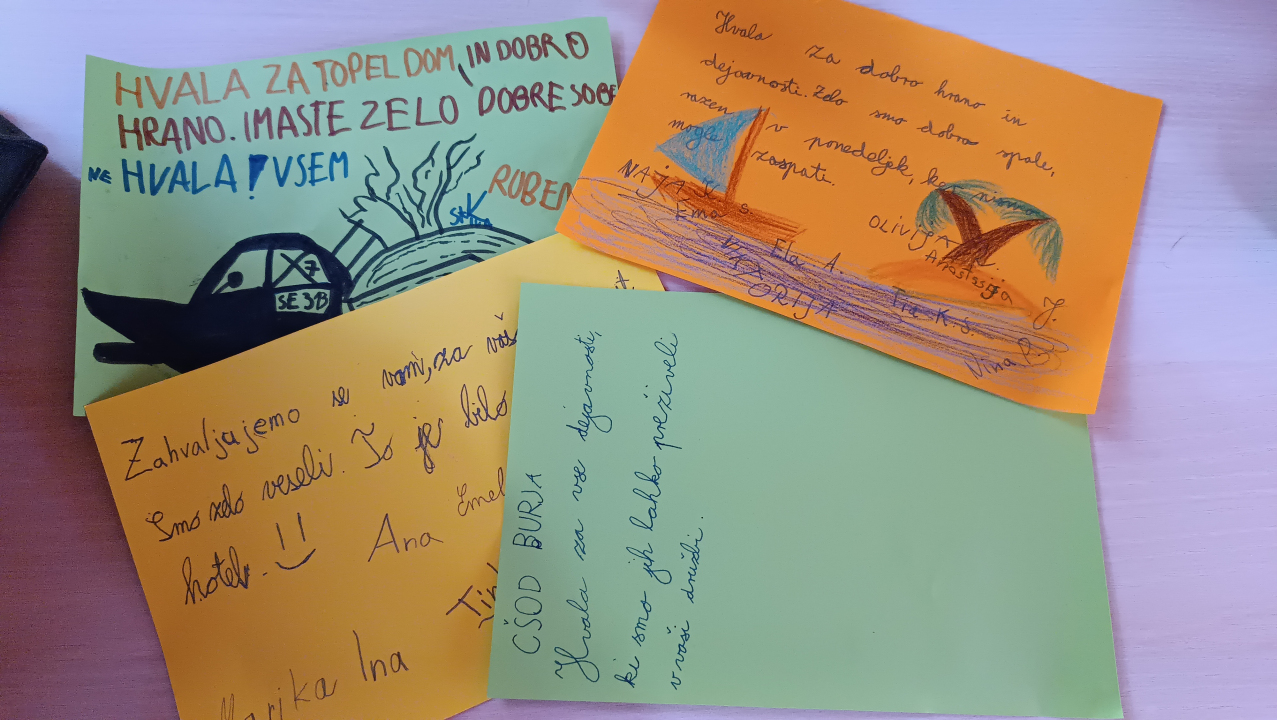 HVALA ZA TOPEL DOM, IN DOBRO
HRANO. IMASTE ZELO DOBRE SOBE
NE HVALA! VSEM
RUBEN
SE 3B
Hvala za dobro hrano in
dejavnosti. Zelo smo dobro spale,
razen v ponedeljek, ker nismo
mogle zaspati.
NAJA
Ema S.
Ela A.
OLIVIJA
Anastasija J.
Tia K.S.
Nina
Zahvaljajemo se vam, za vaš
Smo zelo veseli. To je bilo
hotelu.
Ana
Marika Ina
ČŠOD BURJA
Hvala za vse dejavnosti,
ki smo jih lahko preživeli
v vaši družbi.